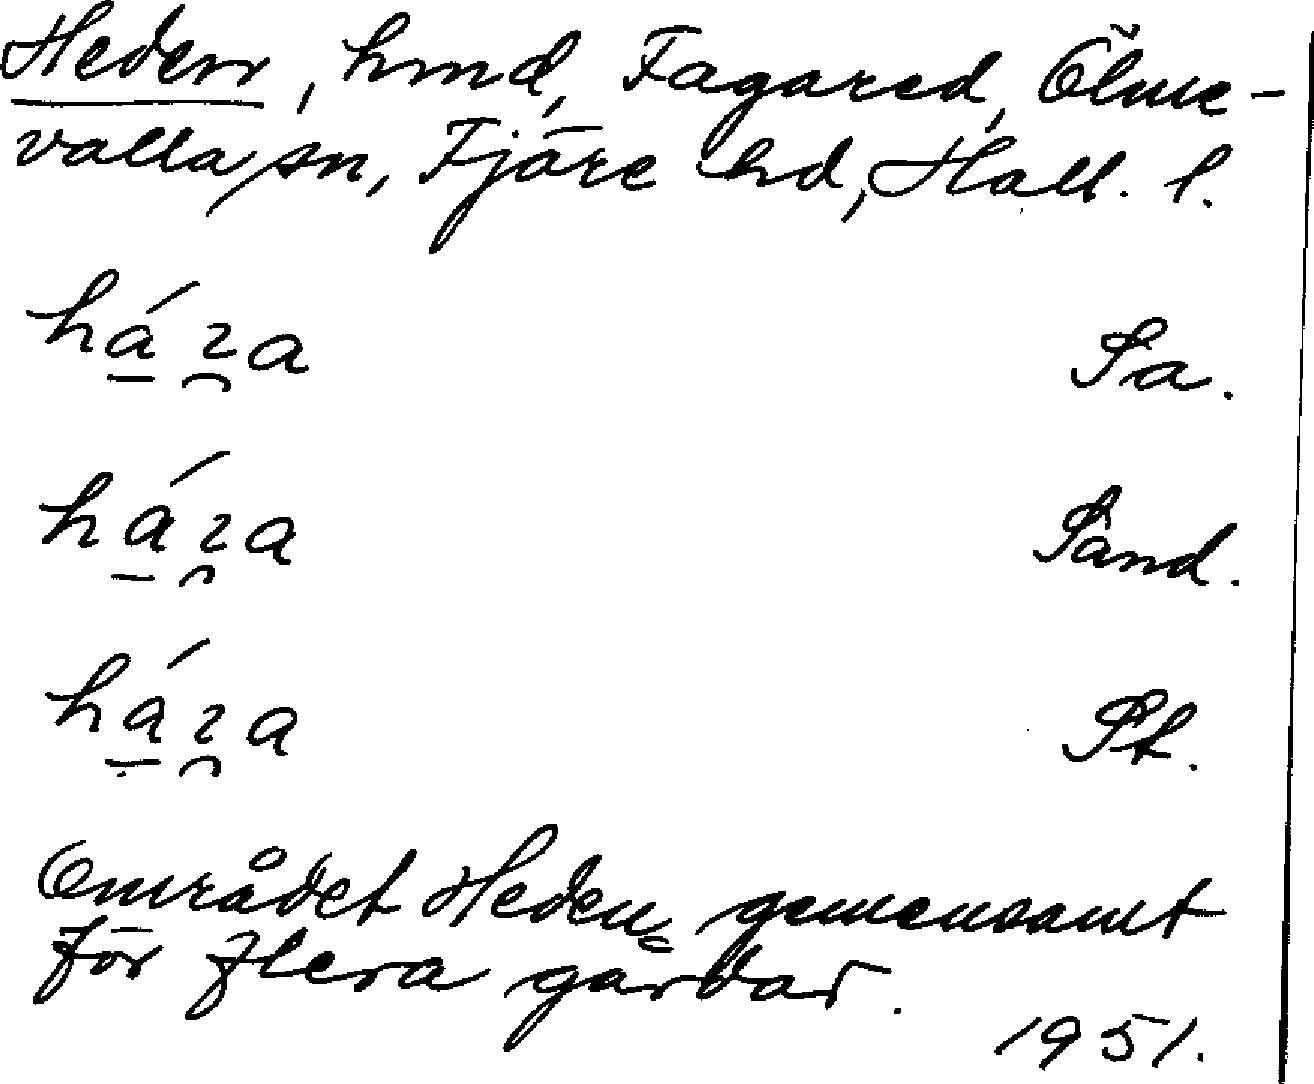 Heden, hmd, Fagared, Ölme-
valla sn, Fjäre hd, Hall. l.
há̠ɿ̯a Sa.
há̠ɿ̯a Sand.
há̠ɿ̯a Pt.
Området Heden, gemensamt
för flera gårdar.
1951.